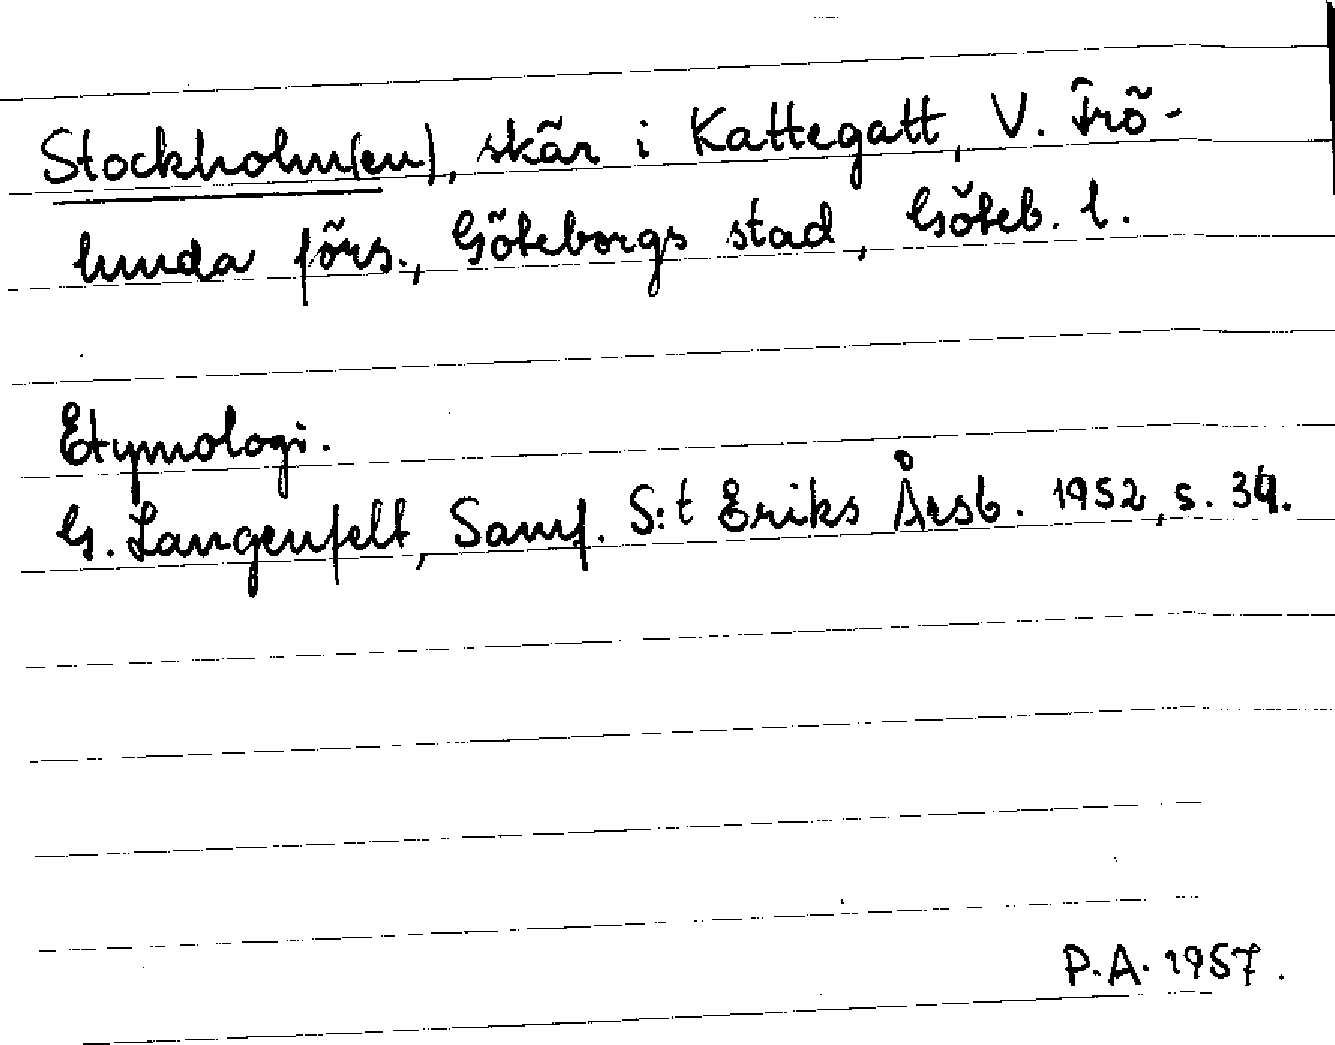 Stockholm(en), skär i Kattegatt, V. Frö-
lunda förs., Göteborgs stad, Göteb. l.
Etymologi.
G. Langenfelt, Samf. S:t Eriks Årsb. 1952, s. 34.
P.A. 1957.